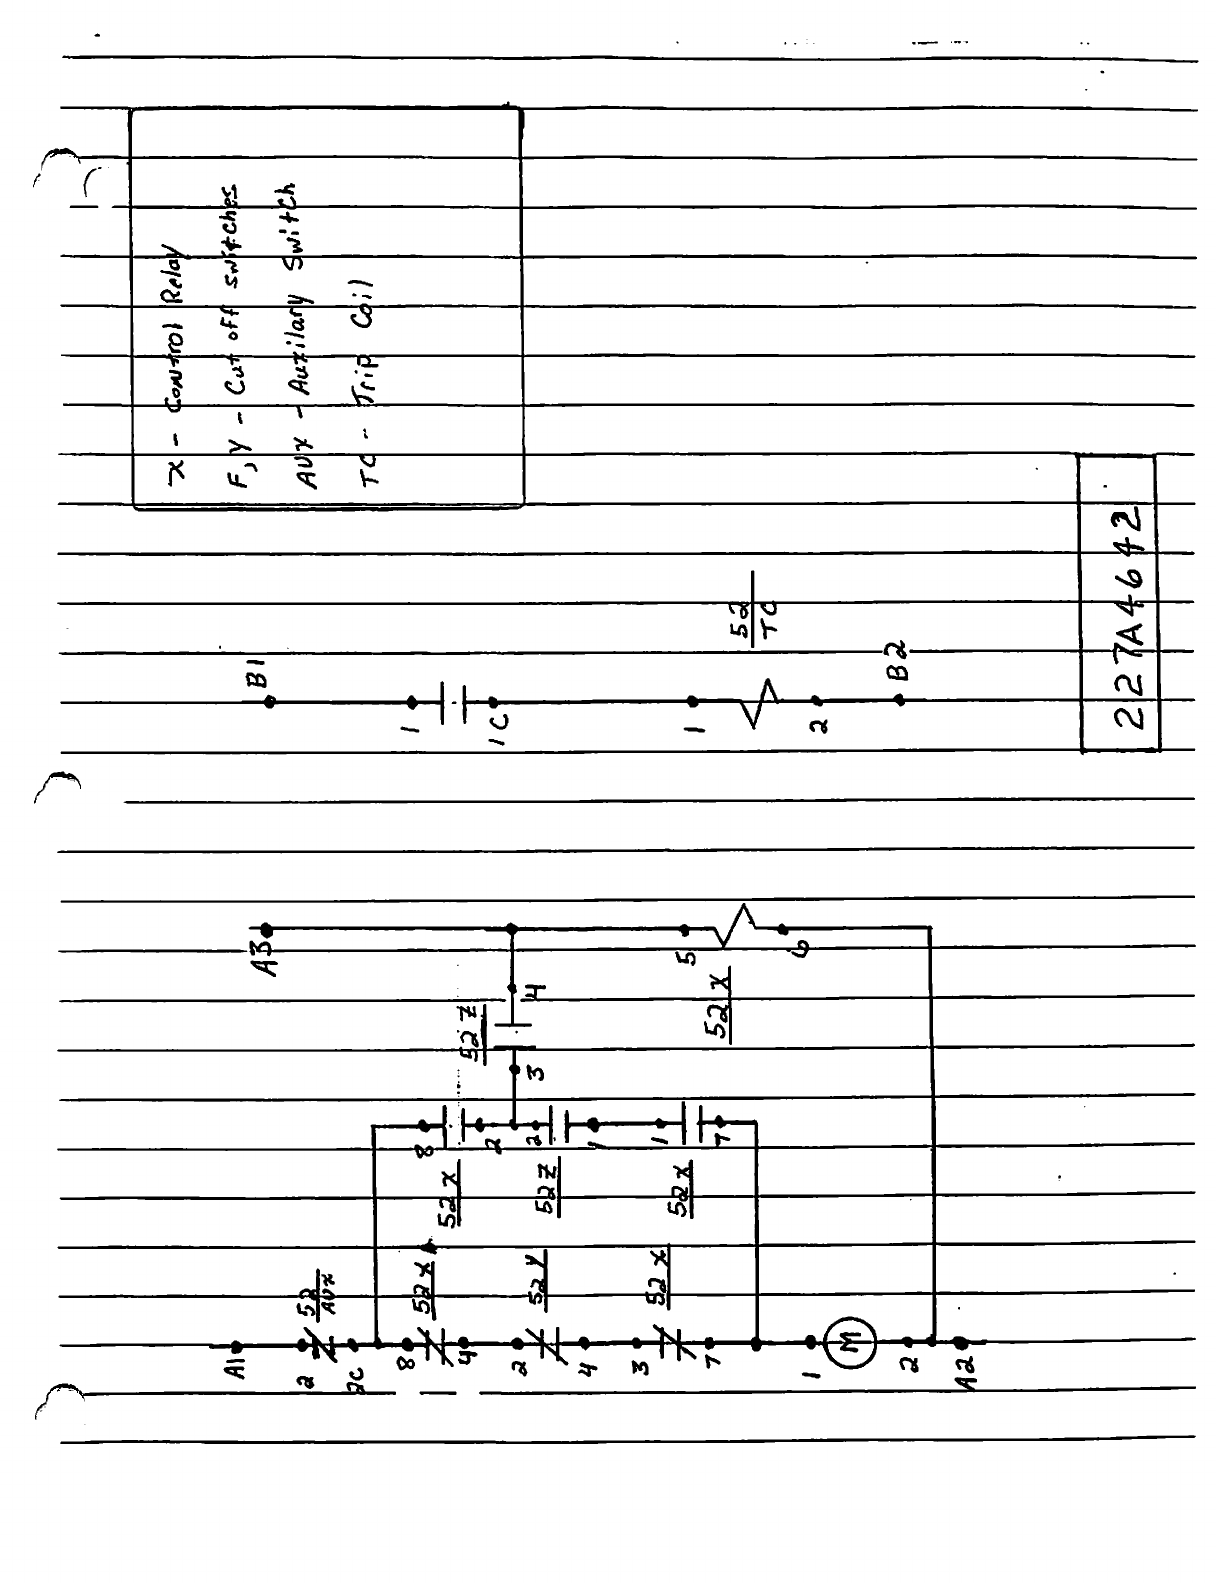 X - Control Relay
F, Y - Cut off switches
AUX - Auxilary Switch
TC - Trip Coil
B1
1
1C
1
52
TC
2
B2
227A4642
A3
5
52 X
6
4
52 Z
3
8
52 X
2
2
52 Z
1
1
52 X
7
A1
2
52
AUX
2C
8
52 X
4
2
52 Y
4
3
52 X
7
1
M
2
A2